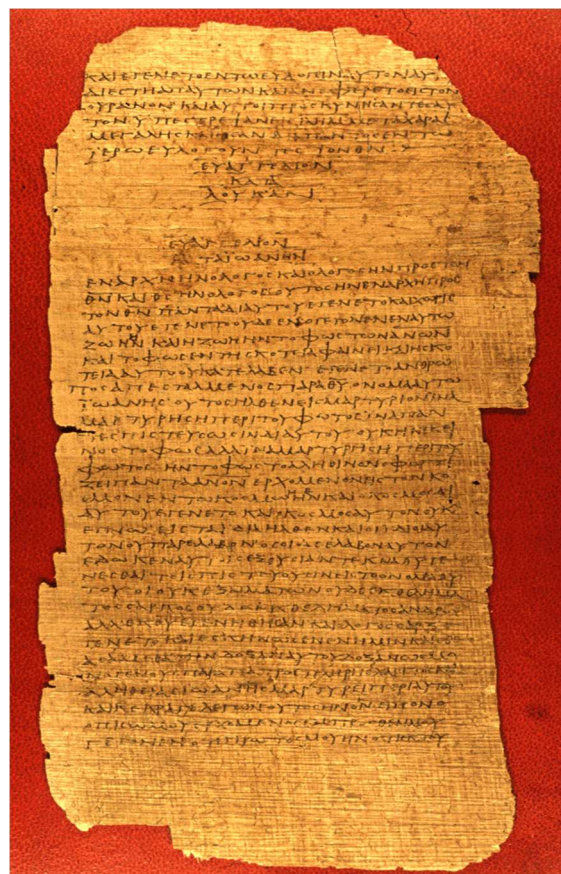 ΚΑΙΕΓΕΝΕΤΟΕΝΤΩΕΥΛΟΓΕΙΝΑΥΤΟΝΑΥ
ΔΙΕϹΤΗΑΠΑΥΤΩΝΚΑΙΑΝΕΦΕΡΕΤΟΕΙϹΤΟΝ
ΟΥΡΑΝΟΝΚΑΙΑΥΤΟΙΠΡΟϹΚΥΝΗϹΑΝΤΕϹΑΥ
ΤΟΝΥΠΕϹΤΡΕΨΑΝ ΜΕΤΑΧΑΡΑϹ
ΜΕΓΑΛΗϹΚΑΙΗϹΑΝ ΕΝΤΩ
ΙΕΡΩΕΥΛΟΓΟΥΝΤΕϹΤΟΝΘΝ
ΕΥΑΓΓΕΛΙΟΝ
ΚΑΤΑ
ΛΟΥΚΑΝ
ΕΥΑΓΓΕΛΙΟΝ
ΚΑΤΑΙΩΑΝΗΝ
ΕΝΑΡΧΗΗΝΟΛΟΓΟϹΚΑΙΟΛΟΓΟϹΗΝΠΡΟϹΤΟΝ
ΘΝΚΑΙΘϹΗΝΟΛΟΓΟϹΟΥΤΟϹΗΝΕΝΑΡΧΗΠΡΟϹ
ΤΟΝΘΝΠΑΝΤΑΔΙΑΥΤΟΥΕΓΕΝΕΤΟΚΑΙΧΩΡΙϹ
ΑΥΤΟΥΕΓΕΝΕΤΟΟΥΔΕΕΝΟΓΕΓΟΝΕΝΕΝΑΥΤΩ
ΖΩΗΗΝΚΑΙΗΖΩΗΗΝΤΟΦΩϹΤΩΝΑΝΩΝ
ΚΑΙΤΟΦΩϹΕΝΤΗϹΚΟΤΕΙΑΦΑΙΝΕΙΚΑΙΗϹΚΟ
ΤΕΙΑΑΥΤΟΟΥΚΑΤΕΛΑΒΕΝΕΓΕΝΕΤΟΑΝΘΡΩ
ΠΟϹΑΠΕϹΤΑΛΜΕΝΟϹΠΑΡΑΘΥΟΝΟΜΑΑΥΤΩ
ΙΩΑΝΗϹΟΥΤΟϹΗΛΘΕΝΕΙϹΜΑΡΤΥΡΙΟΝΙΝΑ
ΜΑΡΤΥΡΗϹΗΠΕΡΙΤΟΥΦΩΤΟϹΙΝΑΠΑΝ
ΤΕϹΠΙϹΤΕΥϹΩϹΙΝΔΙΑΥΤΟΥΟΥΚΗΝΕΚΕΙ
ΝΟϹΤΟΦΩϹΑΛΛΙΝΑΜΑΡΤΥΡΗϹΗΠΕΡΙΤΟΥ
ΦΩΤΟϹΗΝΤΟΦΩϹΤΟΑΛΗΘΙΝΟΝΟΦΩΤΙ
ΖΕΙΠΑΝΤΑΑΝΟΝΕΡΧΟΜΕΝΟΝΕΙϹΤΟΝΚΟ
ϹΜΟΝΕΝΤΩΚΟϹΜΩΗΝΚΑΙΟΚΟϹΜΟϹΔΙ
ΑΥΤΟΥΕΓΕΝΕΤΟΚΑΙΟΚΟϹΜΟϹΑΥΤΟΝΟΥΚ
ΕΓΝΩΕΙϹΤΑΙΔΙΑΗΛΘΕΝΚΑΙΟΙΙΔΙΟΙΑΥ
ΤΟΝΟΥΠΑΡΕΛΑΒΟΝΟϹΟΙΔΕΕΛΑΒΟΝΑΥΤΟΝ
ΕΔΩΚΕΝΑΥΤΟΙϹΕΞΟΥϹΙΑΝΤΕΚΝΑΘΥΓΕ
ΝΕϹΘΑΙΤΟΙϹΠΙϹΤΕΥΟΥϹΙΝΕΙϹΤΟΟΝΟΜΑΑΥ
ΤΟΥΟΙΟΥΚΕΞΑΙΜΑΤΩΝΟΥΔΕΕΚΘΕΛΗΜΑ
ΤΟϹϹΑΡΚΟϹΟΥΔΕΕΚΘΕΛΗΜΑΤΟϹΑΝΔΡΟϹ
ΑΛΛΑΕΚΘΥΕΓΕΝΗΘΗϹΑΝΚΑΙΟΛΟΓΟϹϹΑΡΞΕ
ΓΕΝΕΤΟΚΑΙΕϹΚΗΝΩϹΕΝΕΝΗΜΙΝΚΑΙΕΘΕ
ΑϹΑΜΕΘΑΤΗΝΔΟΞΑΝΑΥΤΟΥΔΟΞΑΝΩϹΜΟ
ΝΟΓΕΝΟΥϹΠΑΡΑΠΑΤΡΟϹΠΛΗΡΗϹΧΑΡΙΤΟϹΚΑΙ
ΑΛΗΘΕΙΑϹΙΩΑΝΗϹΜΑΡΤΥΡΕΙΠΕΡΙΑΥΤΟΥ
ΚΑΙΚΕΚΡΑΓΕΛΕΓΩΝΟΥΤΟϹΗΝΟΝΕΙΠΟΝΟ
ΟΠΙϹΩΜΟΥΕΡΧΟΜΕΝΟϹΕΜΠΡΟϹΘΕΝΜΟΥ
ΓΕΓΟΝΕΝΟΤΙΠΡΩΤΟϹΜΟΥΗΝΟΤΙΕΚΤΟΥ